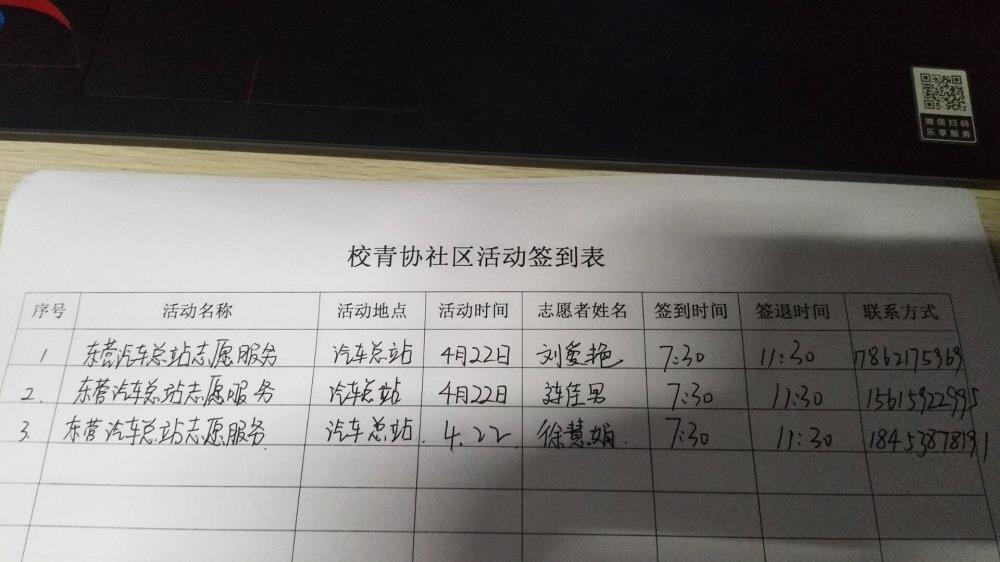 微信扫码
乐享服务
校青协社区活动签到表
序号 活动名称 活动地点 活动时间 志愿者姓名 签到时间 签退时间 联系方式
1 东营汽车总站志愿服务 汽车总站 4月22日 刘爱艳 7:30 11:30 17862175969
2. 东营汽车总站志愿服务 汽车总站 4月22日 佳男 7:30 11:30 15615922995
3. 东营汽车总站志愿服务 汽车总站. 4.22 徐慧娟. 7:30 11:30 18453878191